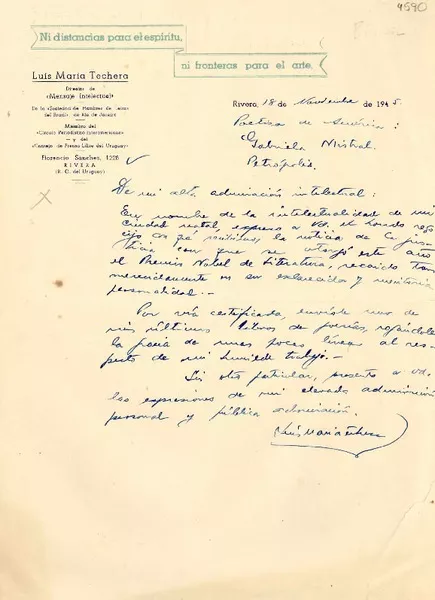 4590
Ni distancias para el espíritu,
ni fronteras para el arte.
Luis María Techera
Director de
«Mensaje Intelectual»
De la «Sociedad de Hombres de Letras
del Brasil», de Río de Janeiro
Miembro del
«Círculo Periodístico Interamericano»
— y del
«Consejo de Prensa Libre del Uruguay»
Florencio Sánchez, 1226
RIVERA
(R. O. del Uruguay)
Rivera, 18 de Noviembre de 1945.
Poetisa de América:
Gabriela Mistral.
Petrópolis.
De mi alta admiración intelectual:
En nombre de la intelectualidad de mi
ciudad natal, expreso a Vd. el hondo rego
cijo la noticia de la jus
ticia con que se otorgó este año
el Premio Nobel de Literatura, recaído tan
merecidamente en su esclarecida y meritoria
personalidad.—
Por vía certificada, envíole uno de
mis últimos libros de poesías, rogándole
la gracia de unas pocas líneas al res-
pecto de mi humilde trabajo.—
Sin otro particular, presento a Vd.
las expresiones de mi elevada admiración
personal y pública admiración.
Luis María Techera